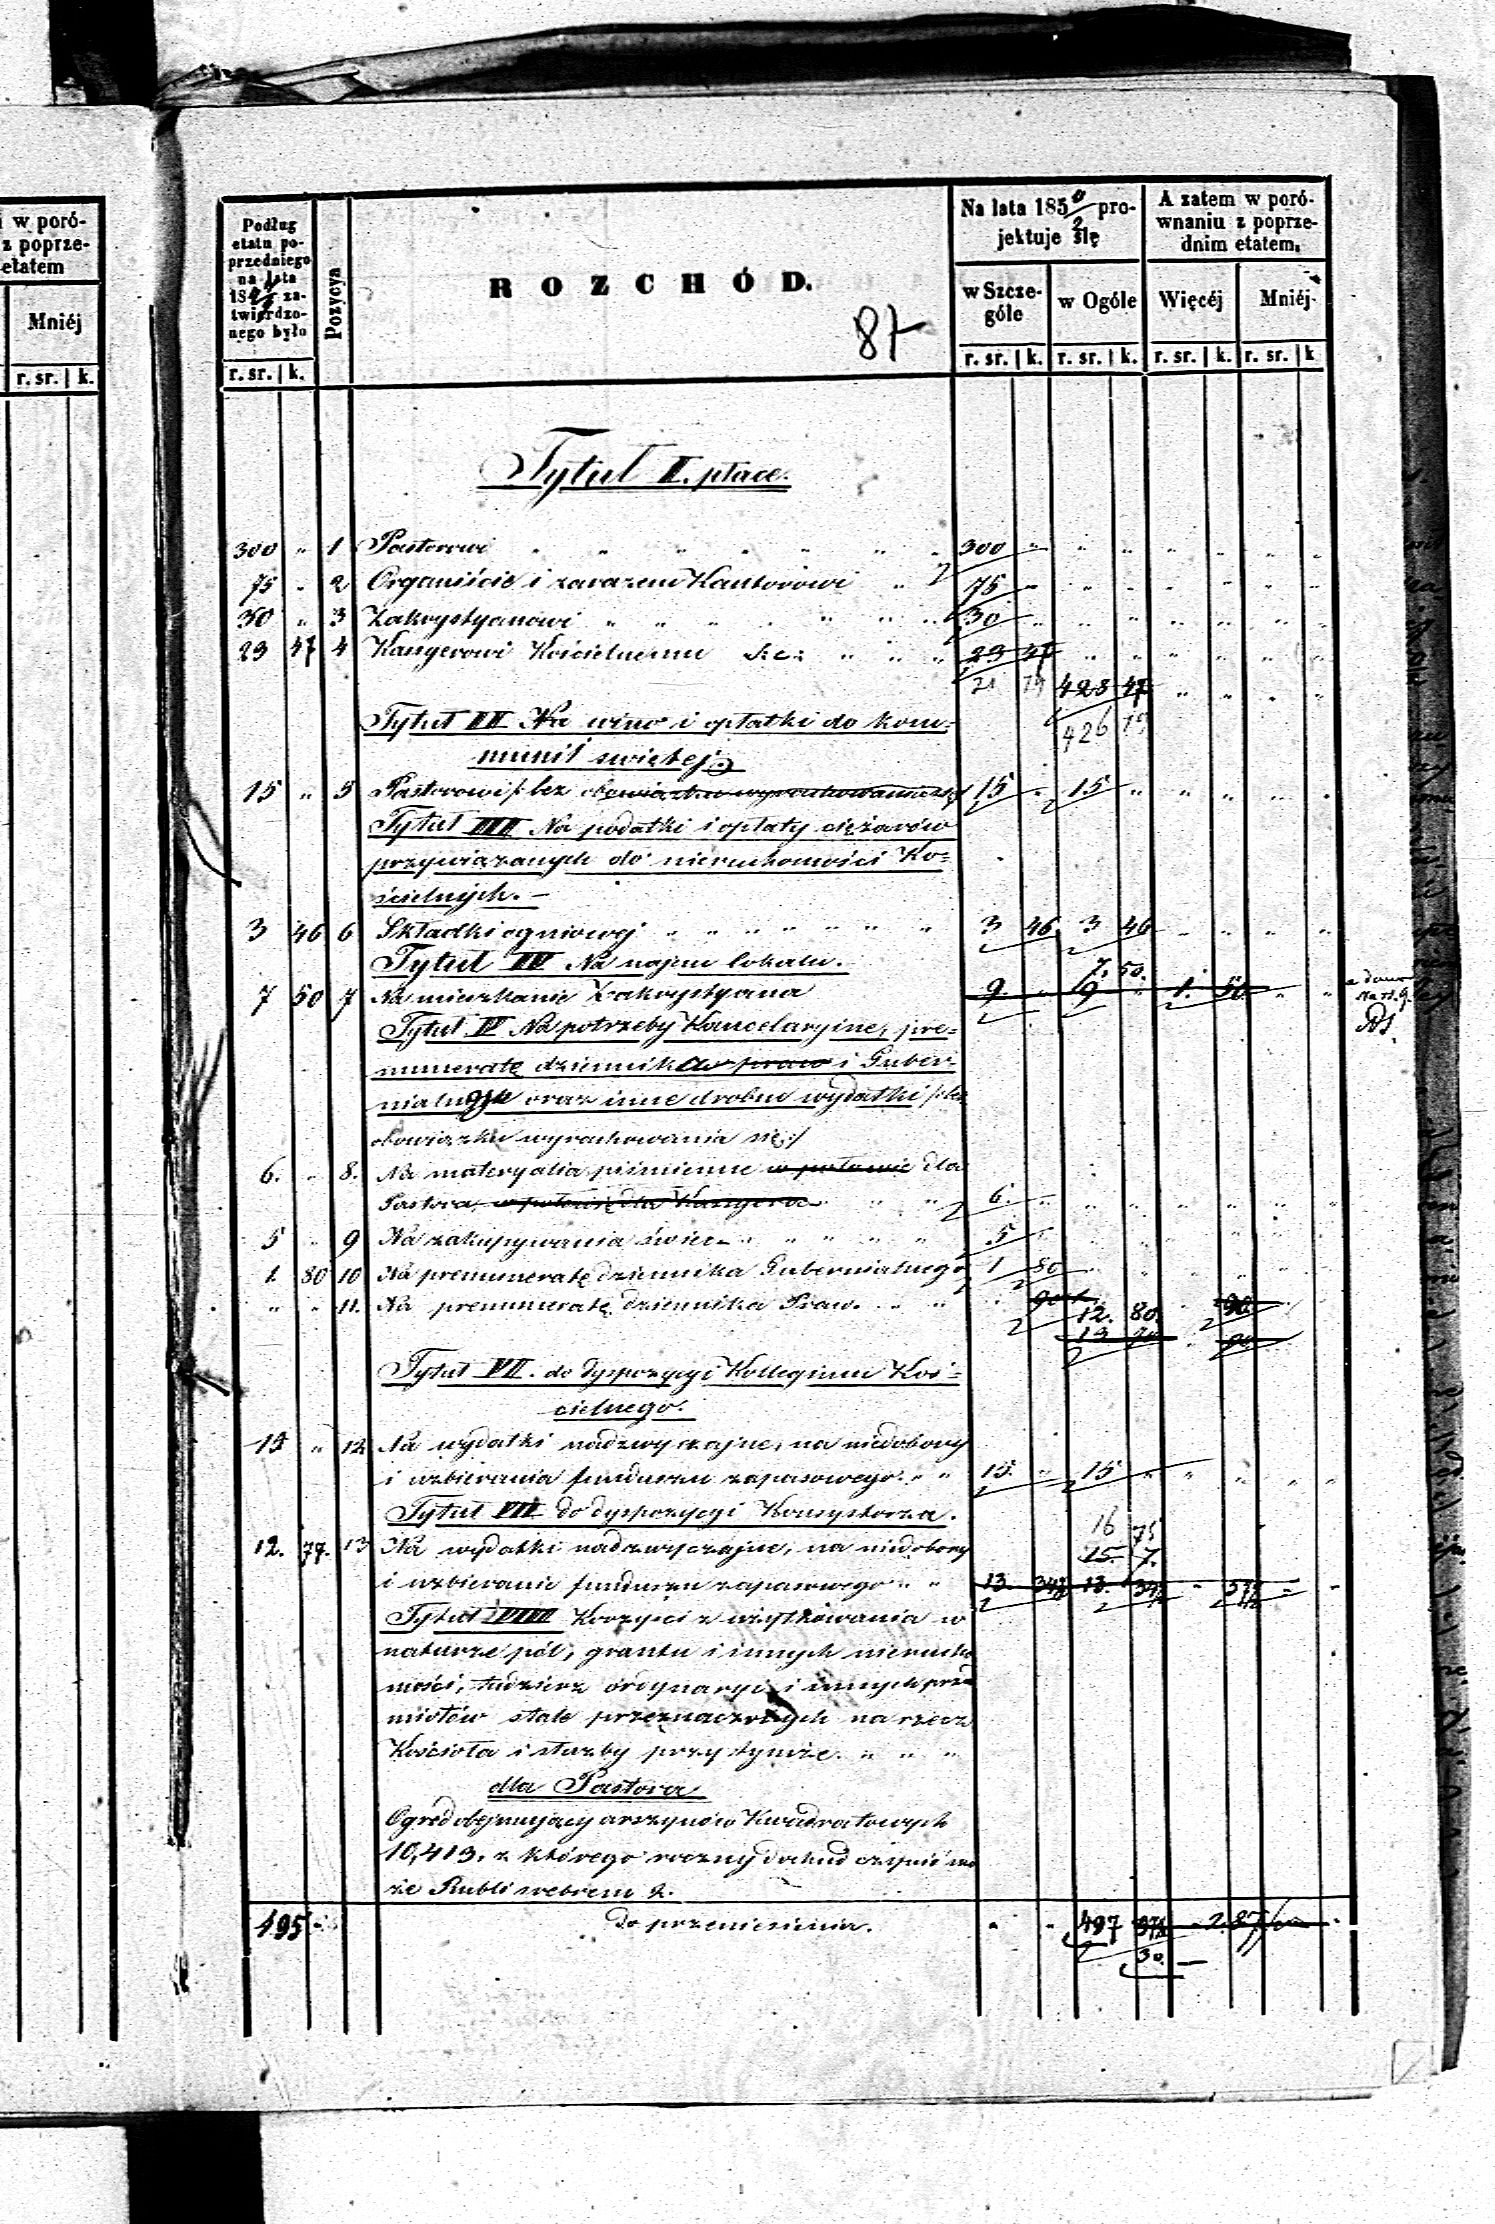 i w poró-
z poprze-
etatem
Mniéj
r. sr. | k.
Podług
etatu po-
przedniego
na lata
184 za-
twierdzo-
nego było
r. sr. | k.
Pozycya
ROZCHÓD.
87
Na lata 185 0/2 pro-
jektuje się
w Szcze-
góle
w Ogóle
r. sr. | k. r. sr. | k.
A zatem w poró-
wnaniu z poprze-
dnim etatem.
Więcéj
Mniéj
r. sr. | k. r. sr. | k
Tytuł II. płace.
300 " 1 Pastorowi " " " " " " " 300 " " " " " " "
75 " 2 Organiście i zarazem Kantorowi " 75 " " " " " " "
30 " 3 Zakrystyanowi " " " " " " " 30 " " " " " " "
29 47 4 Kangerowi Kościelnemu &c: " " " 23 47 " " " " " "
21 79 428 47 " " " "
Tytuł III Na wino i opłatki do kom-
426 79
munii swiętej.
15 " 5 Pastorowi /: bez obowiązku wyrachowania się/ 15 " 15 " " " " "
Tytuł III Na podatki i opłaty ciężarów
przywiązanych do nieruchomości Ko-
ścielnych. –
3 46 6 Składki ogniowej " " " " " " " 3 46 3 46 " " " "
Tytuł IV Na najem lokalu.
7. 50.
7 50 7 Na mieszkanie Zakrystyana 9. " 9 " 1. 50 " "
Tytuł V Na potrzeby Kancelaryine, pre-
numeratę dziennika praw i Guber-
nialnego oraz inne drobne wydatki /: bez
obowiązku wyrachowania się :/
6. " 8. Na materyalia piśmienne w połowie dla
Pastora, w połowie dla Kangera " " " 6. " " " " " " "
5 " 9 Na zakupywania świec " " " " " " 5 " " " " " " "
1. 80 10 Na prenumeratę dziennika Gubernialnego 1 80 " " " " " "
" " 11. Na prenumeratę dziennika Praw. " " " 90 " 90
12. 80.
13 70 " 90
Tytuł VI. do dyspozycyi Kollegium Koś-
cielnego.
15 " 12 Na wydatki nadzwyczajne, na niedobory
i uzbierania funduszu zapasowego. " " 15. " 15 " " " " "
Tytuł VII do dyspozycyi Konsystorza.
16 75
12. 77. 13 Na wydatki nadzwyczajne, na niedobory 15. 7.
i uzbieranie funduszu zapasowego " " 13. 34½ 13. 34½ " 57½ " "
Tytuł VIII Korzyści z użytkowania w
naturze pól, gruntu i innych nierucho
mości, tudzież ordynaryi i innych prze
miotów stale przeznaczonych na rzecz
Kościoła i służby przy tymże. " " "
dla Pastora
Ogród obejmujący arszynów Kwadratowych
10,413. z którego roczny dochód czynić mo
że Rubli srebrem 2.
495 " do przeniesienia. " " 497 97½ " 2. 87½ "
30. –